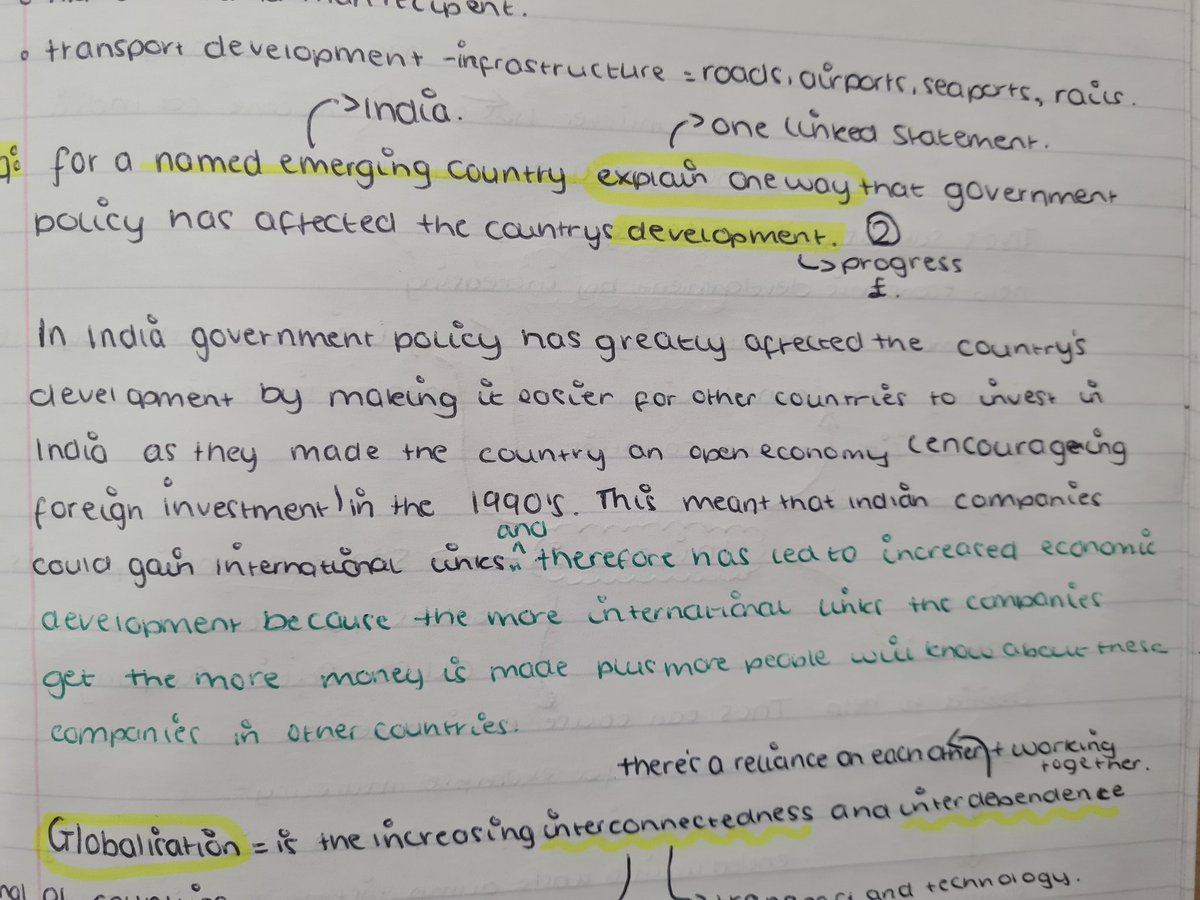 recipent.
• transport development - infrastructure = roads, airports, seaports, rails.
→ India.
→ one linked statement.
for a named emerging country explain one way that government
policy has affected the countrys development. ②
↳ progress
£.
In India government policy has greatly affected the country's
development by making it easier for other countries to invest in
India as they made the country an open economy (encourageing
foreign investment) in the 1990's. This meant that indian companies
and
could gain international links. ^ therefore has led to increased economic
development because the more international links the companies
get the more money is made plus more people will know about these
companies in other countries.
there's a reliance on each other + working
together.
Globalisation = is the increasing interconnectedness and interdebendence
and technology.